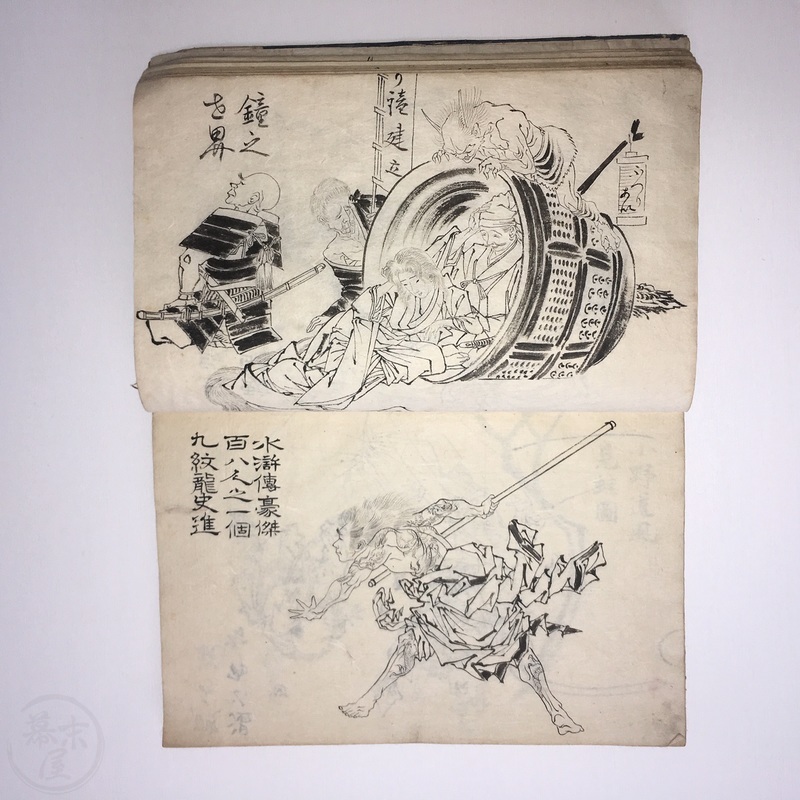 鐘之
世界
り鐘建立
水滸傳豪傑
百八人之一個
九紋龍史進
幕末
屋